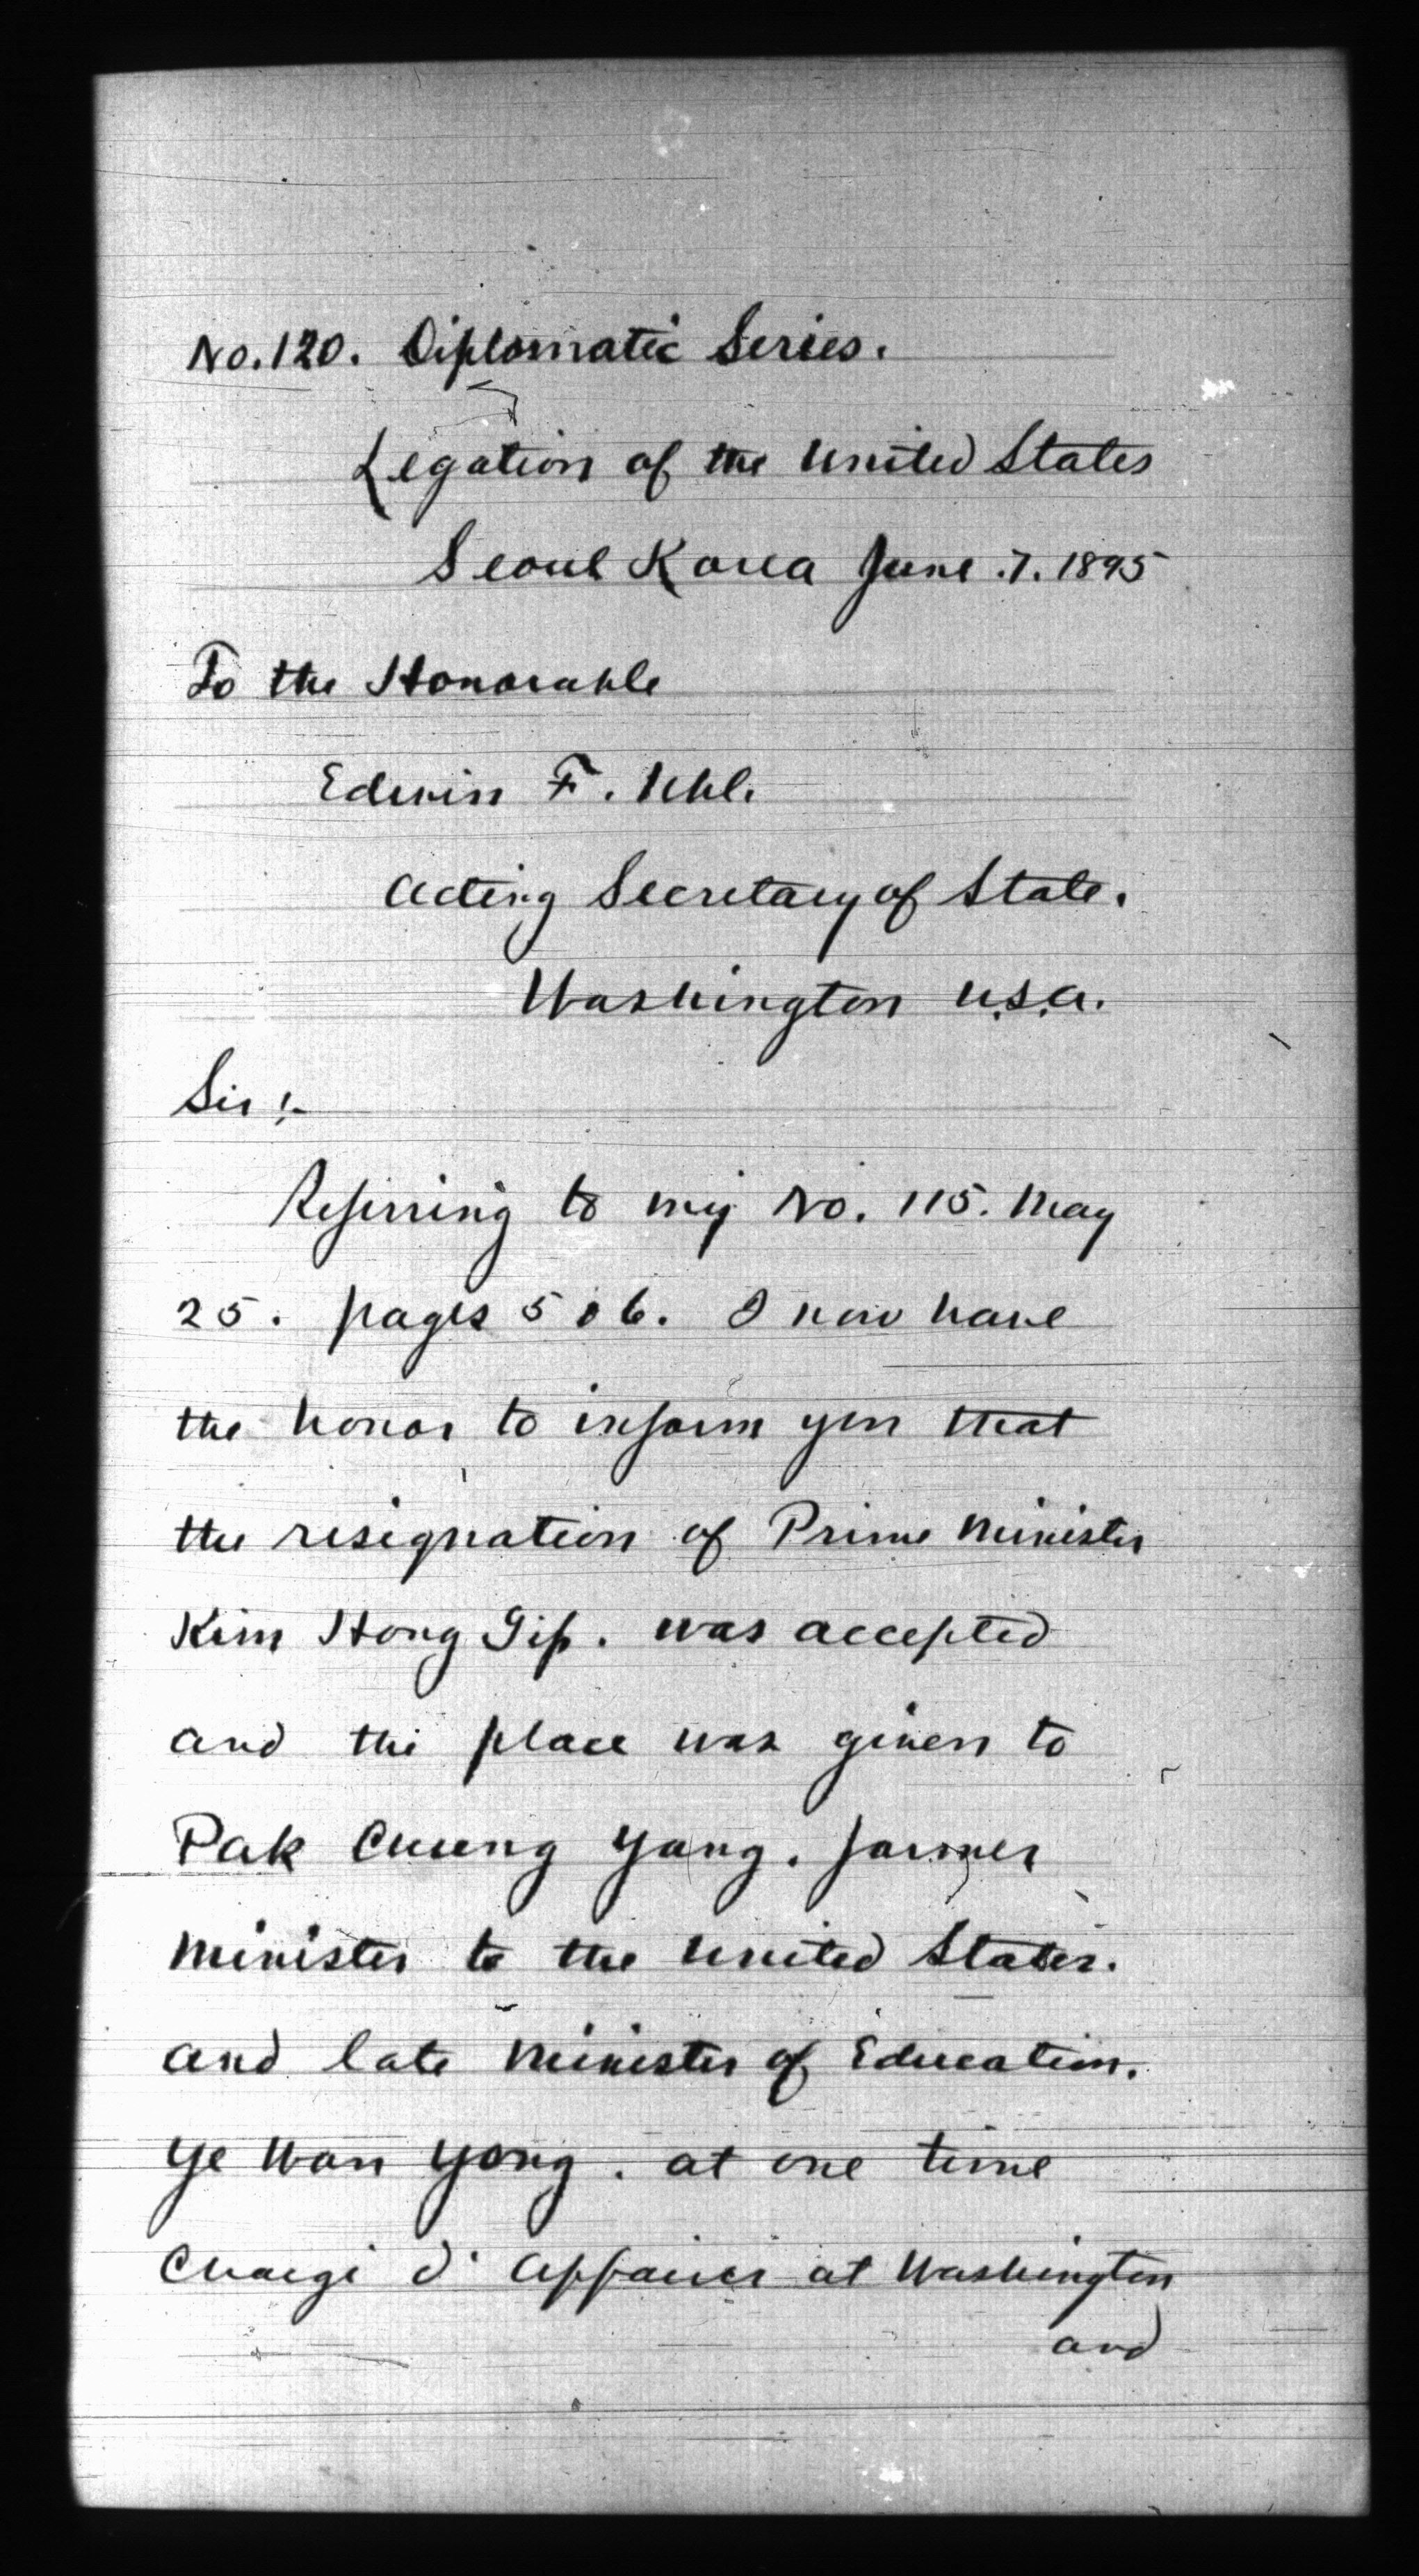 No. 120. Diplomatic Series.
Legation of the United States
Seoul Korea June 7. 1895
To the Honorable
Edwin F. Uhl.
Acting Secretary of State.
Washington U.S.A.
Sir:-
Referring to my No. 115. May
25. pages 5 & 6. I now have
the honor to inform you that
the resignation of Prime Minister
Kim Hong Gip. was accepted
and the place was given to
Pak Chung Yang. former
Minister to the United States.
and late Minister of Education.
Ye Wan Yong. at one time
Chargé d'Affaires at Washington
and